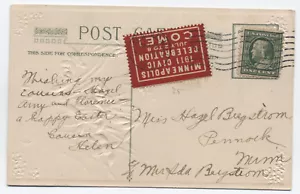 POST
THIS SIDE FOR CORRESPONDENCE.
MINNEAPOLIS
1911 CIVIC
CELEBRATION
JULY 2 TO 8
COME!
ONE CENT
Wishing my
cousins Hazel
Amy and Florence
a happy Easter
Cousin
Helen
Miss Hazel Bergstrom
Pennock
Minn
c/o Mrs Ida Bergstrom